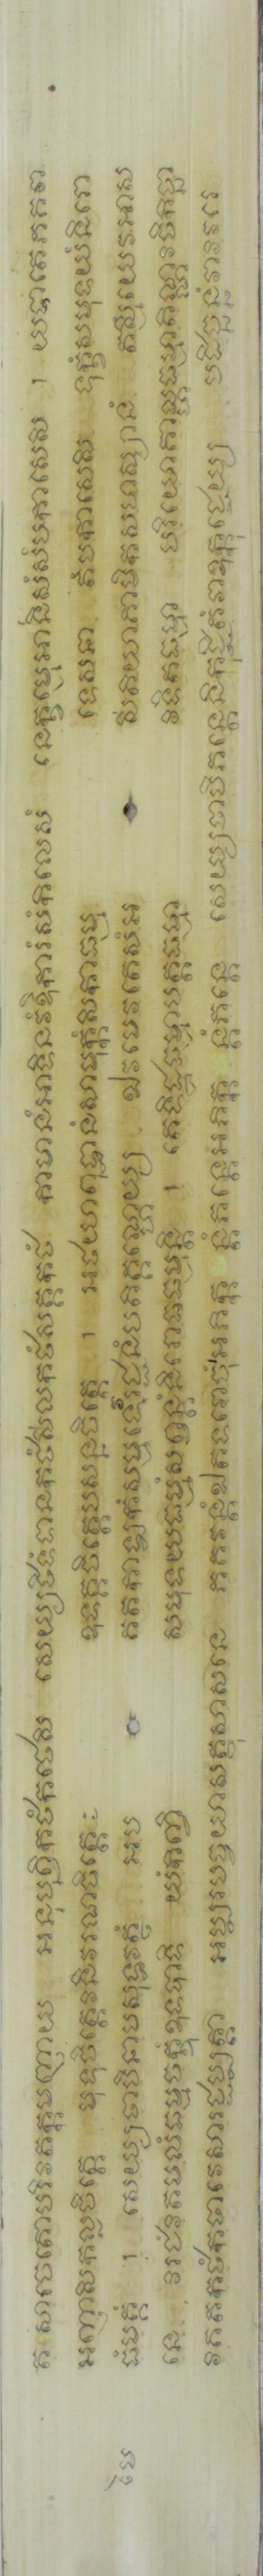 ត សាចេតោបរិវតក្កមញាយ អនុបុព្វិកថំកថេសិ សេយ្យថិទំទានកថំសីលកថំសគ្គកថំ កាមានំអាទីនវំឱការំសំកិលេសំ នេក្ខម្មេអានិសំសំបកាសេសិ ។ យទាតេភគវា
អញាសិកល្លចិត្តេ មុទុចិត្តេវនិវរណចិត្តេ ះ ឧទគ្គចិត្តេបសន្នចិត្តេ ។ អថយាពុទ្ធានំសាមុក្កំសិកាធម្ម ទេសនា តំបកាសេសិ ទុក្ខំសមុទយំនិរោ
បៃ ធំមគ្គំ ។ សេយ្យថាបិនាមសុទ្ធវត្ថំ អប គតកាឡកំសម្មទេវរជ្ជនំបតិគ្គណ្ហេយ្យ ឯវមេវតេសំអ សីតិយាគាមិកសហស្សានំ តស្មិយេវអាស
នេ វរជំវតមលំធម្មចក្ខុំឧទបាទិ យំកិញ្ចិ សមុទយធម្មំសព្វន្តំនិរោធធម្មន្តិ ។ តេទិដ្ឋធម្មាបត្តធម្មា វទិតធម្មា បរិយោគាឡ្ហធម្មាតិណ្ណវចិកិច្ឆា
វគតកថំកថាវេសារជ្ជប្បត្តា អប្បរបច្ចយាសត្ថុសាសនេ ភគវន្តំឯតទវោចុំអភិក្ក ន្តំភន្តេអភិក្ក ន្តំភន្តេ សេយ្យថាបិភន្តេនិកុជ្ជិតំវាឧក្កុជ្ជេយ្យ បដិច្ឆន្នំវាវវរេ